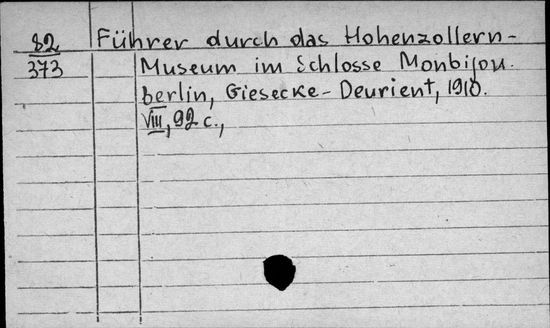 82 Führer durch das Hohenzollern-
373 Museum im Schlosse Monbijou.
Berlin, Giesecke-Deurient, 1910.
VIII, 92 c.,